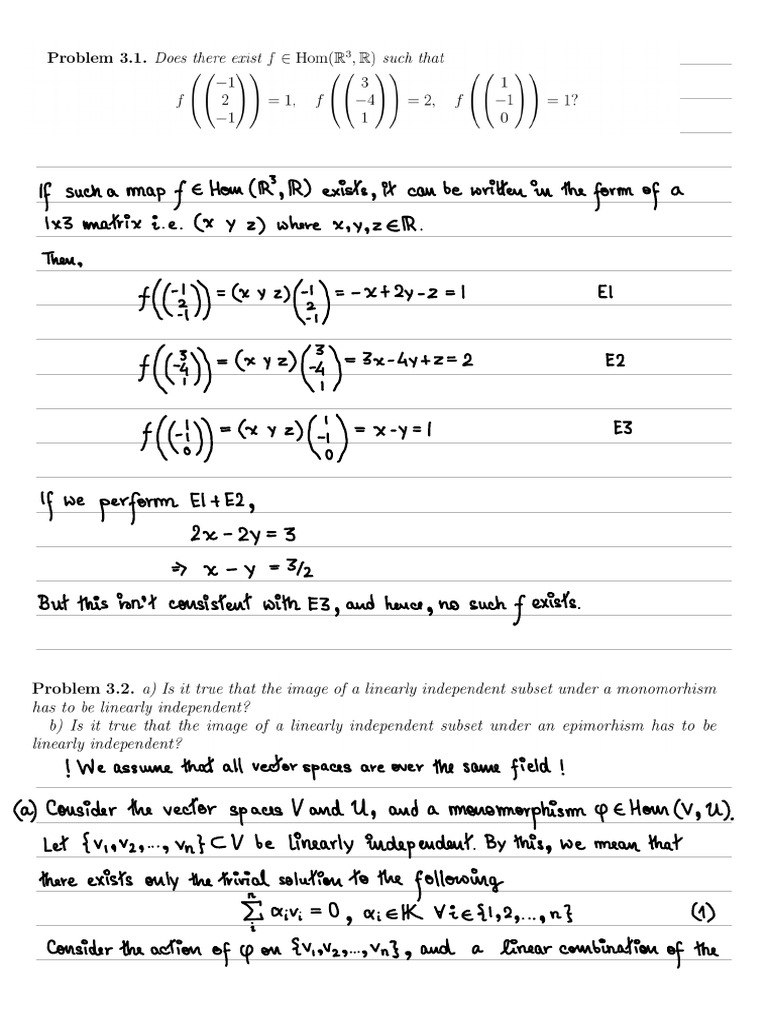 Problem 3.1. Does there exist f ∈ Hom(ℝ³, ℝ) such that
f((−1 2 −1)) = 1, f((3 −4 1)) = 2, f((1 −1 0)) = 1?
If such a map f ∈ Hom(ℝ³, ℝ) exists, it can be written in the form of a
1x3 matrix i.e. (x y z) where x, y, z ∈ ℝ.
Then,
f((-1 2 -1)) = (x y z)(-1 2 -1) = -x+2y-z = 1 E1
f((3 -4 1)) = (x y z)(3 -4 1) = 3x-4y+z = 2 E2
f((1 -1 0)) = (x y z)(1 -1 0) = x-y = 1 E3
If we perform E1+E2,
2x - 2y = 3
⇒ x - y = 3/2
But this isn't consistent with E3, and hence, no such f exists.
Problem 3.2. a) Is it true that the image of a linearly independent subset under a monomorhism
has to be linearly independent?
b) Is it true that the image of a linearly independent subset under an epimorhism has to be
linearly independent?
! We assume that all vector spaces are over the same field !
(a) Consider the vector spaces V and U, and a monomorphism φ ∈ Hom(V, U).
Let {v₁, v₂, ..., vₙ} ⊂ V be linearly independent. By this, we mean that
there exists only the trivial solution to the following
∑ᵢⁿ αᵢvᵢ = 0, αᵢ ∈ 𝕂 ∀ i ∈ {1, 2, ..., n} (1)
Consider the action of φ on {v₁, v₂, ..., vₙ}, and a linear combination of the